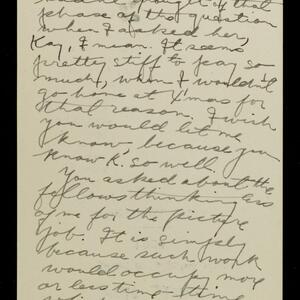 phase of the question
when I asked her,
Kay, I mean. It seems
pretty stiff to pay so
much, when I wouldn't
go home at X'mas for
that reason. I wish
you would let me
know, because you
know K. so well.
You asked about the
fellows thinking less
of me for the picture
job. It is simply
because such work
would occupy more
or less time - time